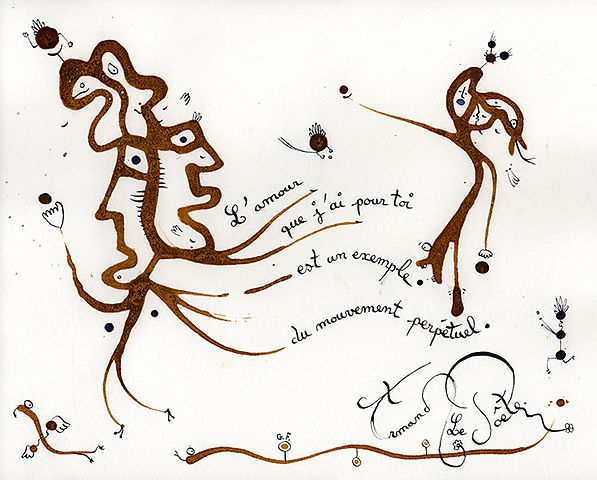 L'amour
que j'ai pour toi
est un exemple
du mouvement perpétuel.
Armand
Le Poête
G.F.